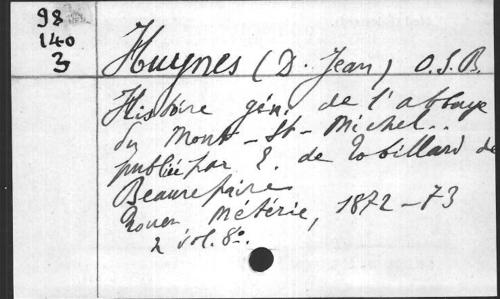 98
140
3
Huynes (D. Jean) O.S.B.
Histoire gén. de l'abbaye
du Mont-St-Michel..
publiée par E. de Robillard de
Beaurepaire
Rouen Métérie, 1872-73
2 vol. 8o.